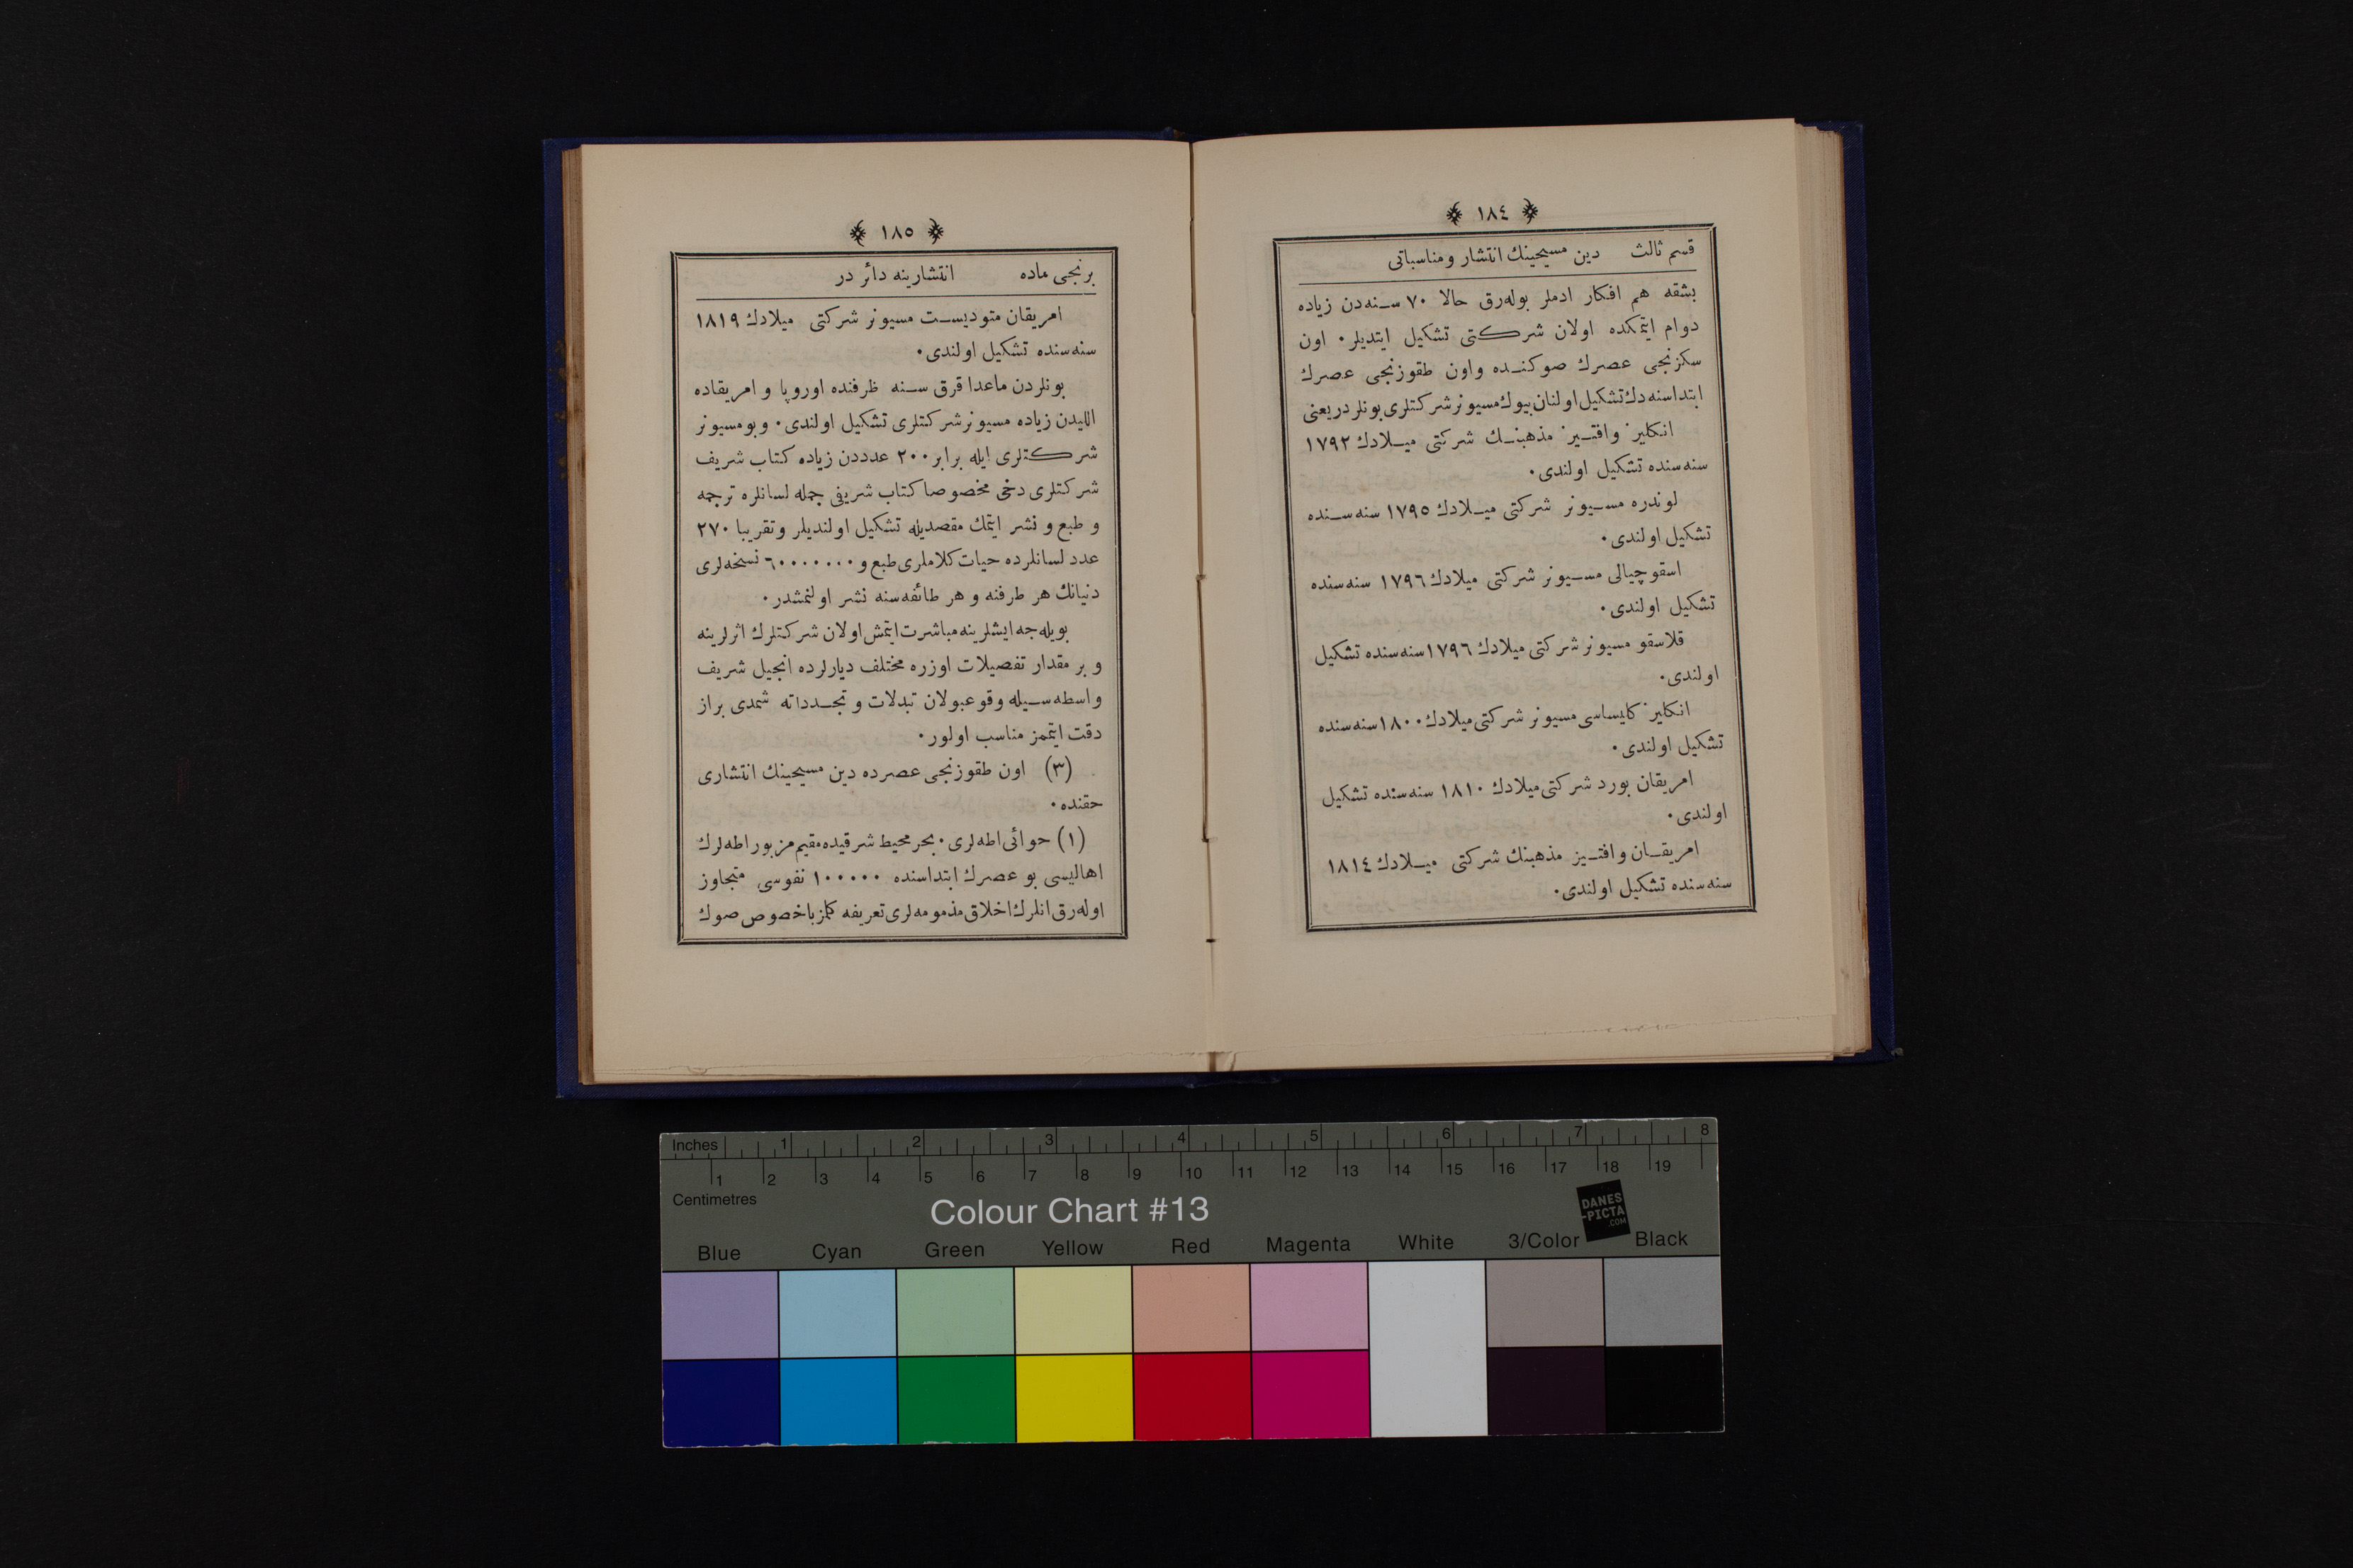 ١٨٤
قسم ثالث دين مسيحينك انتشار ومناسباتى
بشقه هم افكار ادملر بوله‌رق حالا ٧٠ سنه‌دن زياده
دوام ايتمكده اولان شركتى تشكيل ايتديلر. اون
سكزنجى عصرك صوكنده واون طقوزنجى عصرك
ابتداسنه‌دك تشكيل اولنان بيوك مسيونر شركتلرى بونلردر يعنى
انكليز وافتيز مذهبنك شركتى ميلادك ١٧٩٢
سنه‌سنده تشكيل اولندى.
لوندره مسيونر شركتى ميلادك ١٧٩٥ سنه‌سنده
تشكيل اولندى.
اسقوچيالى مسيونر شركتى ميلادك ١٧٩٦ سنه‌سنده
تشكيل اولندى.
قلاسقو مسيونر شركتى ميلادك ١٧٩٦ سنه‌سنده تشكيل
اولندى.
انكليز كليساسى مسيونر شركتى ميلادك ١٨٠٠ سنه‌سنده
تشكيل اولندى.
امريقان بورد شركتى ميلادك ١٨١٠ سنه‌سنده تشكيل
اولندى.
امريقان وافتيز مذهبنك شركتى ميلادك ١٨١٤
سنه‌سنده تشكيل اولندى.
١٨٥
برنجى ماده انتشارينه دائر در
امريقان متوديست مسيونر شركتى ميلادك ١٨١٩
سنه‌سنده تشكيل اولندى.
بونلردن ماعدا قرق سنه ظرفنده اوروپا و امريقاده
الليدن زياده مسيونر شركتلرى تشكيل اولندى. وبو مسيونر
شركتلرى ايله برابر ٢٠٠ عدددن زياده كتاب شريف
شركتلرى دخى مخصوصا كتاب شريفى جمله لسانلره ترجمه
و طبع و نشر ايتمك مقصديله تشكيل اولنديلر وتقريبا ٢٧٠
عدد لسانلرده حيات كلاملرى طبع و ٦٠٠٠٠٠٠٠ نسخه‌لرى
دنيانك هر طرفنه و هر طائفه‌سنه نشر اولنمشدر.
بويله‌جه ايشلرينه مباشرت ايتمش اولان شركتلرك اثرلرينه
و بر مقدار تفصيلات اوزره مختلف ديارلرده انجيل شريف
واسطه‌سيله وقوعبولان تبدلات و تجدداته شمدى براز
دقت ايتممز مناسب اولور.
(٣) اون طقوزنجى عصرده دين مسيحينك انتشارى
حقنده.
(١) حوائى اطه‌لرى. بحر محيط شرقيده مقيم مزبور اطه‌لرك
اهاليسى بو عصرك ابتداسنده ١٠٠٠٠٠ نفوسى متجاوز
اوله‌رق انلرك اخلاق مذمومه‌لرى تعريفه كلمز باخصوص صوك
Inches 1 2 3 4 5 6 7 8
1 2 3 4 5 6 7 8 9 10 11 12 13 14 15 16 17 18 19
Centimetres
Colour Chart #13
DANES
-PICTA
.COM
Blue Cyan Green Yellow Red Magenta White 3/Color Black